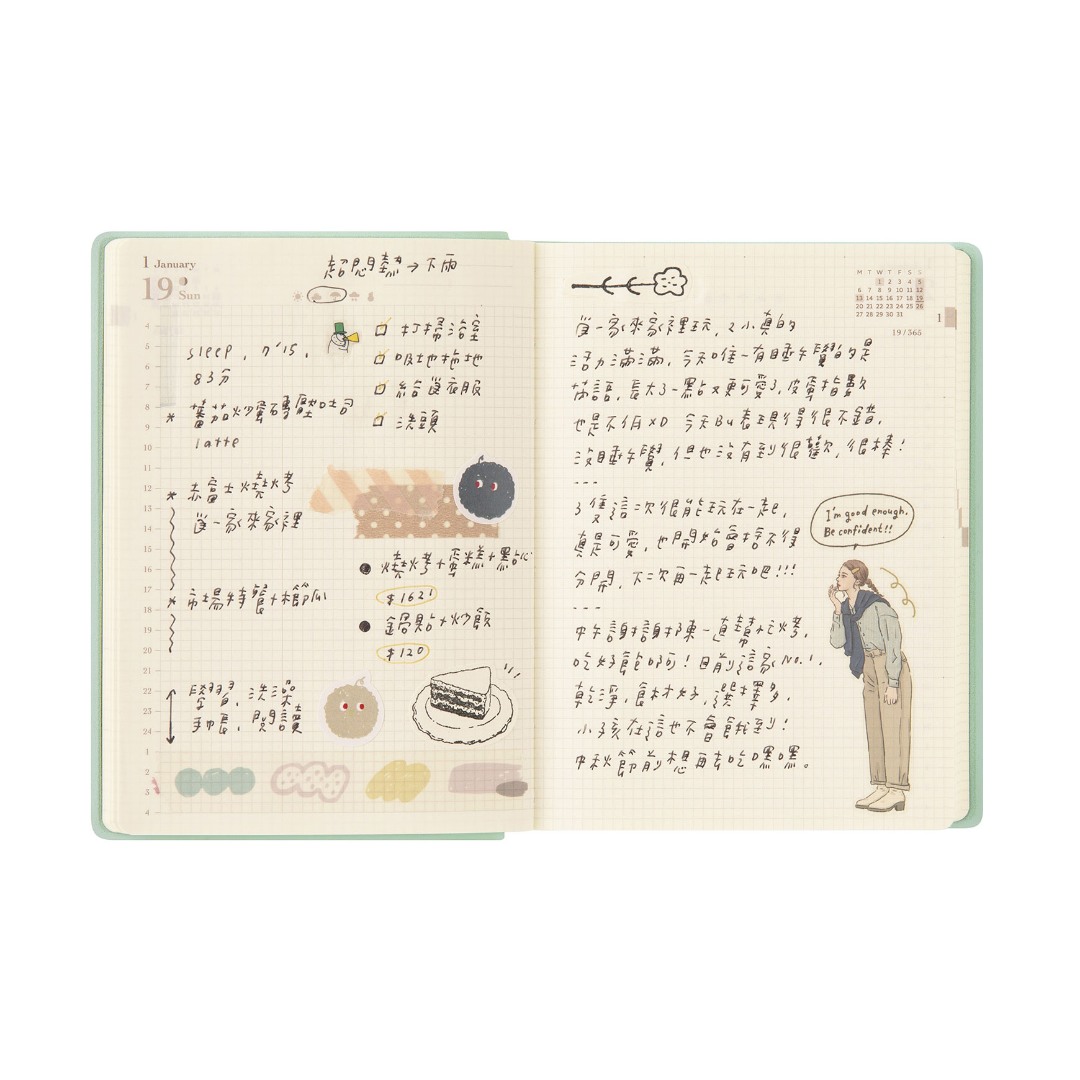 1 January
19 Sun
超悶熱→下雨
4
5
6
7
8
9
10
11
12
13
14
15
16
17
18
19
20
21
22
23
24
1
2
3
4
sleep, 7'15,
83分
* 蕃茄炒蛋 吐司
latte
* 赤富士燒烤
家來家裡
* 市場特餐+
學習, 洗澡
手帳, 閱讀
打掃浴室
吸地拖地
給 衣服
洗頭
燒烤+蛋糕+點心
$1621
鍋貼+炒飯
$120
M T W T F S S
1 2 3 4 5
6 7 8 9 10 11 12
13 14 15 16 17 18 19
20 21 22 23 24 25 26
27 28 29 30 31
19/365
1
一家來家裡玩, 2小真的
活力滿滿, 今天唯一有睡午覺的是
芮語, 長大了一點點又更可愛了, 皮蛋指數
也是不低XD 今天Bu表現得很不錯,
沒睡午覺, 但也沒有到很 歡, 很棒!
---
3隻這次很能玩在一起,
真是可愛, 也開始會捨不得
分開, 下次再一起玩吧!!!
---
中午謝謝 陳一直幫忙烤,
吃好飽啊! 目前這家No.1,
乾淨, 食材好, 選擇多,
小孩在這也不會餓到!
中秋節前想再去吃嘿嘿。
I'm good enough.
Be confident!!